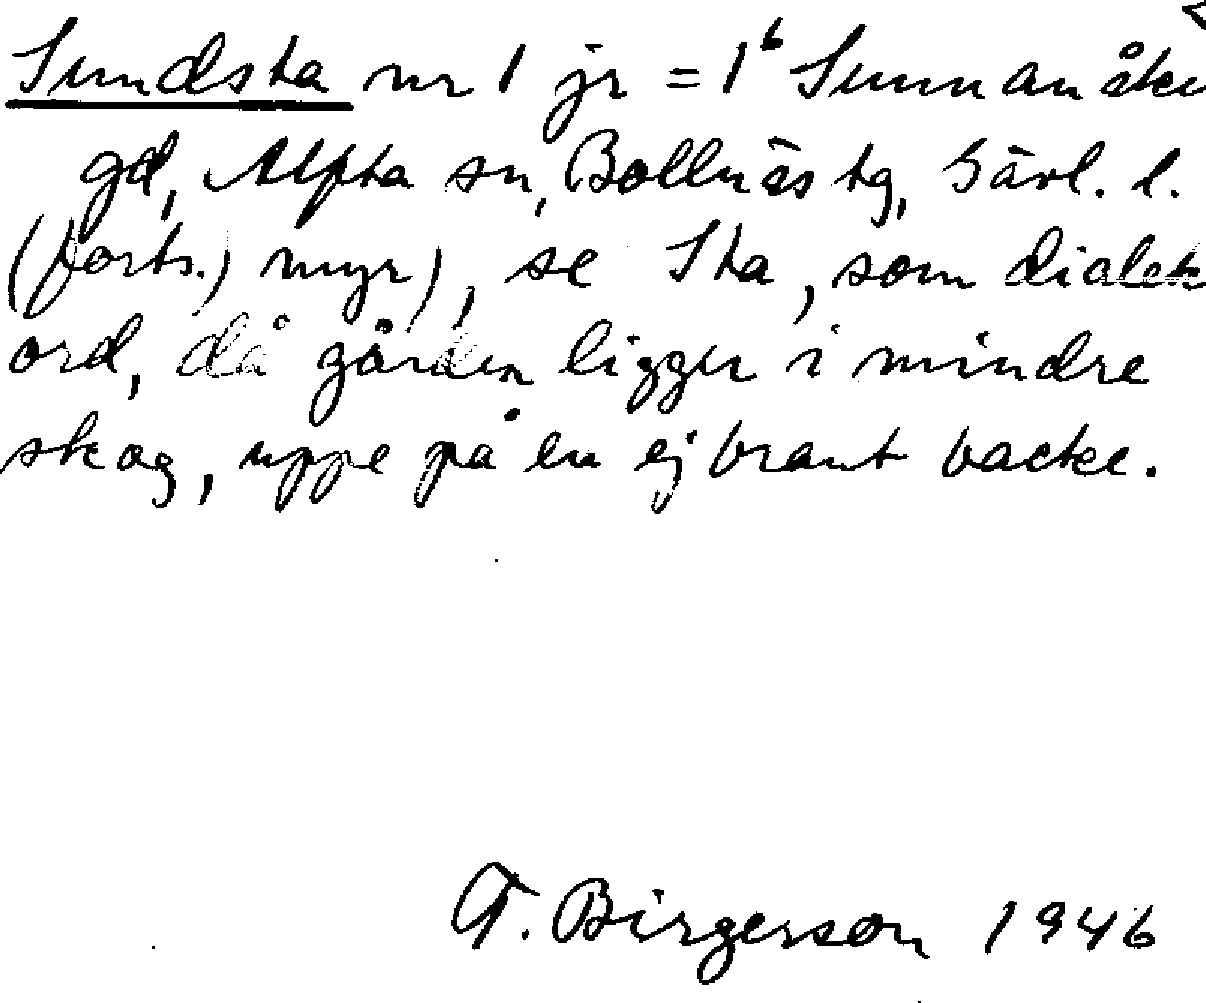 Sundsta nr 1 jr = 1⁶ Sunnanåker
gd, Alfta sn, Bollnäs tg, Gävl. l.
(forts.) myr), se Sta, som dialekt
ord, då gården ligger i mindre
skog, uppe på en ej brant backe.
T. Birgerson 1946